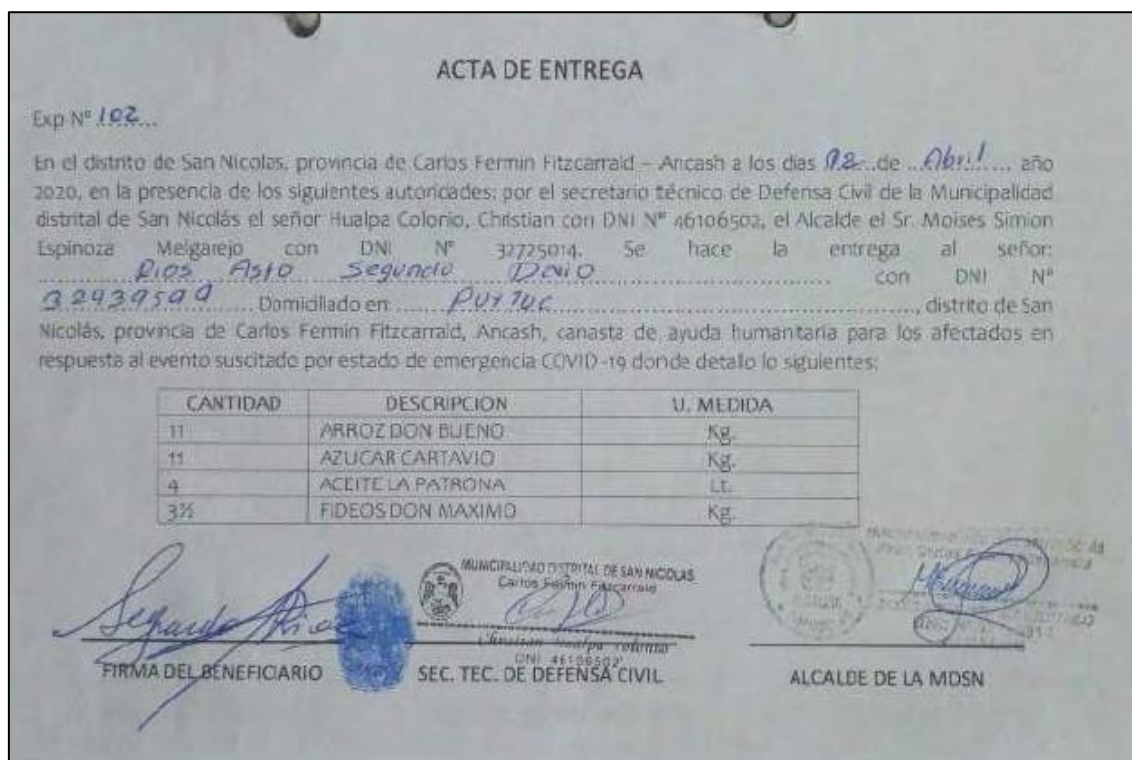 ACTA DE ENTREGA
Exp N° 102
En el distrito de San Nicolas, provincia de Carlos Fermin Fitzcarrald – Ancash a los dias 02 de Abril año
2020, en la presencia de los siguientes autoridades: por el secretario técnico de Defensa Civil de la Municipalidad
distrital de San Nicolás el señor Hualpa Colonio, Christian con DNI N° 46106502, el Alcalde el Sr. Moises Simion
Espinoza Melgarejo con DNI N° 32725014. Se hace la entrega al señor:
Rios Asto Segundo con DNI N°
Domiciliado en: distrito de San
Nicolás, provincia de Carlos Fermin Fitzcarrald, Ancash, canasta de ayuda humanitaria para los afectados en
respuesta al evento suscitado por estado de emergencia COVID -19 donde detallo lo siguientes:
CANTIDAD DESCRIPCION U. MEDIDA
11 ARROZ DON BUENO Kg.
11 AZUCAR CARTAVIO Kg.
4 ACEITE LA PATRONA Lt.
3½ FIDEOS DON MAXIMO Kg.
MUNICIPALIDAD DISTRITAL DE SAN NICOLAS
Carlos Fermin Fitzcarrald
Segundo Rios
Christian Hualpa Colonio
DNI 46106502
FIRMA DEL BENEFICIARIO SEC. TEC. DE DEFENSA CIVIL ALCALDE DE LA MDSN